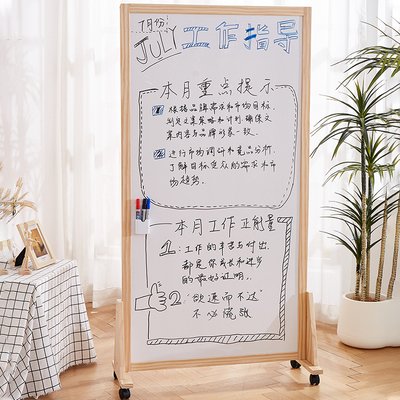 7月份
JULY 工作指导
本月重点提示
1. 根据品牌需求和市场目标,
制定文案策略和计划确保文
案内容与品牌形象一致.
2. 进行市场调研和竞品分析,
了解目标受众的需求和市
场趋势.
本月工作正能量
1.:工作的辛苦与付出,
都是你成长和进步
的最好证明.
2."欲速而不达"
不必慌张